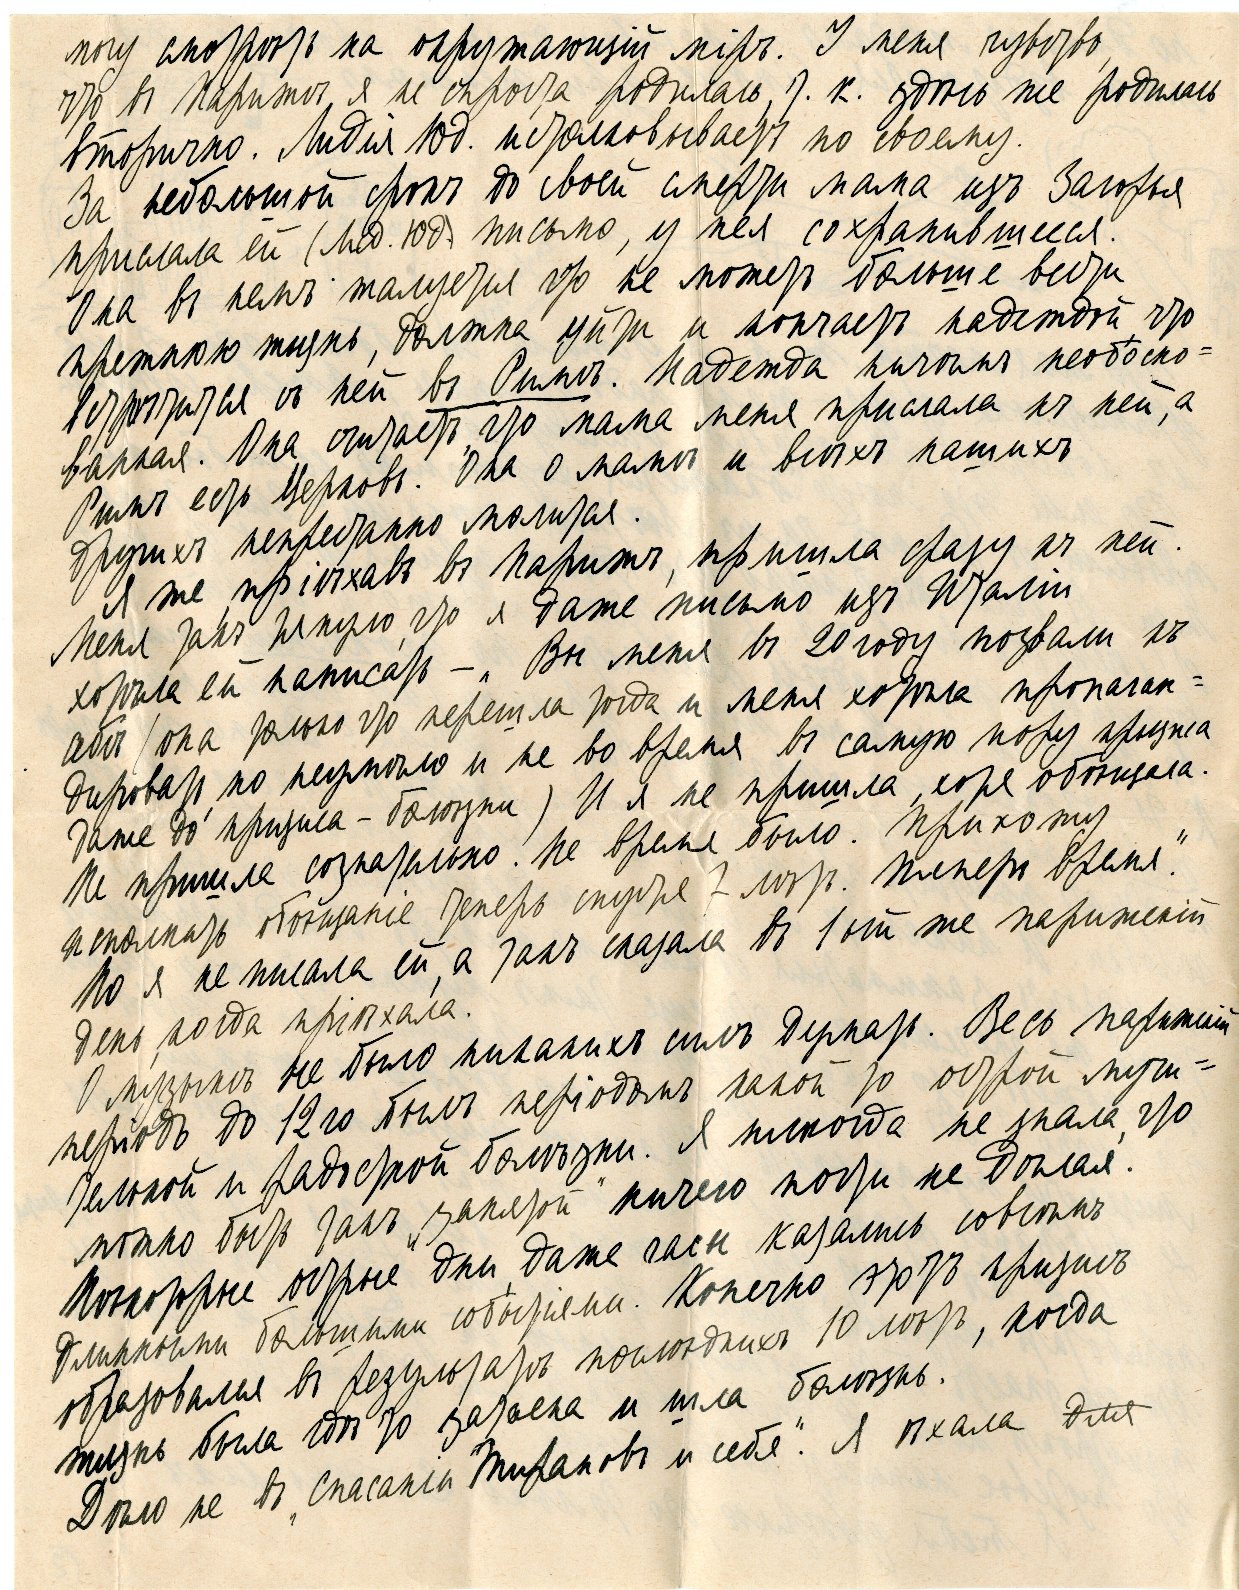 могу смотрѣть на окружающій міръ. У меня чувство,
что въ Парижѣ я не спроста родилась, т. к. здѣсь же родилась
вторично. Лидія Юд. истолковываетъ по своему.
За небольшой срокъ до своей смерти мама изъ Загорья
прислала ей (Лид. Юд.) письмо, у нея сохранившееся.
Она въ немъ жалуется что не можетъ больше вести
прежнюю жизнь, должна уйти и кончаетъ надеждой, что
встрѣтится съ ней въ Римѣ. Надежда ничѣмъ необосно=
ванная. Она считаетъ, что мама меня прислала къ ней, а
Римъ есть Церковь. Она о мамѣ и всѣхъ нашихъ
другихъ непрестанно молится.
Я же, пріѣхавъ въ Парижъ, пришла сразу къ ней.
Меня такъ тянуло, что я даже письмо изъ Италіи
хотѣла ей написать – „Вы меня въ 20 году позвали къ
себѣ (она только что перешла тогда и меня хотѣла пропаган=
дировать, но неумѣло и не во время въ самую пору кризиса
даже до кризиса – болѣзни) И я не пришла, хотя обѣщала.
Не пришла сознательно. Не время было. Прихожу
исполнить обѣщаніе теперь спустя 7 лѣтъ. Теперь время".
Но я не писала ей, а такъ сказала въ 1ый же парижскій
день, когда пріѣхала.
О музыкѣ не было никакихъ силъ держать. Весь парижскій
періодъ до 12го былъ періодомъ какой то острой мучи=
тельной и радостной болѣзни. Я никогда не знала, что
можно быть такъ „занятой" ничего почти не дѣлая.
Нѣкоторые острые дни, даже часы казались совсѣмъ
длинными большими событіями. Конечно этотъ кризисъ
образовался въ результатѣ послѣднихъ 10 лѣтъ, когда
жизнь была гдѣ то зажата и шла болѣзнь.
Дѣло не въ „спасаніи Титановъ и себя". Я ѣхала для